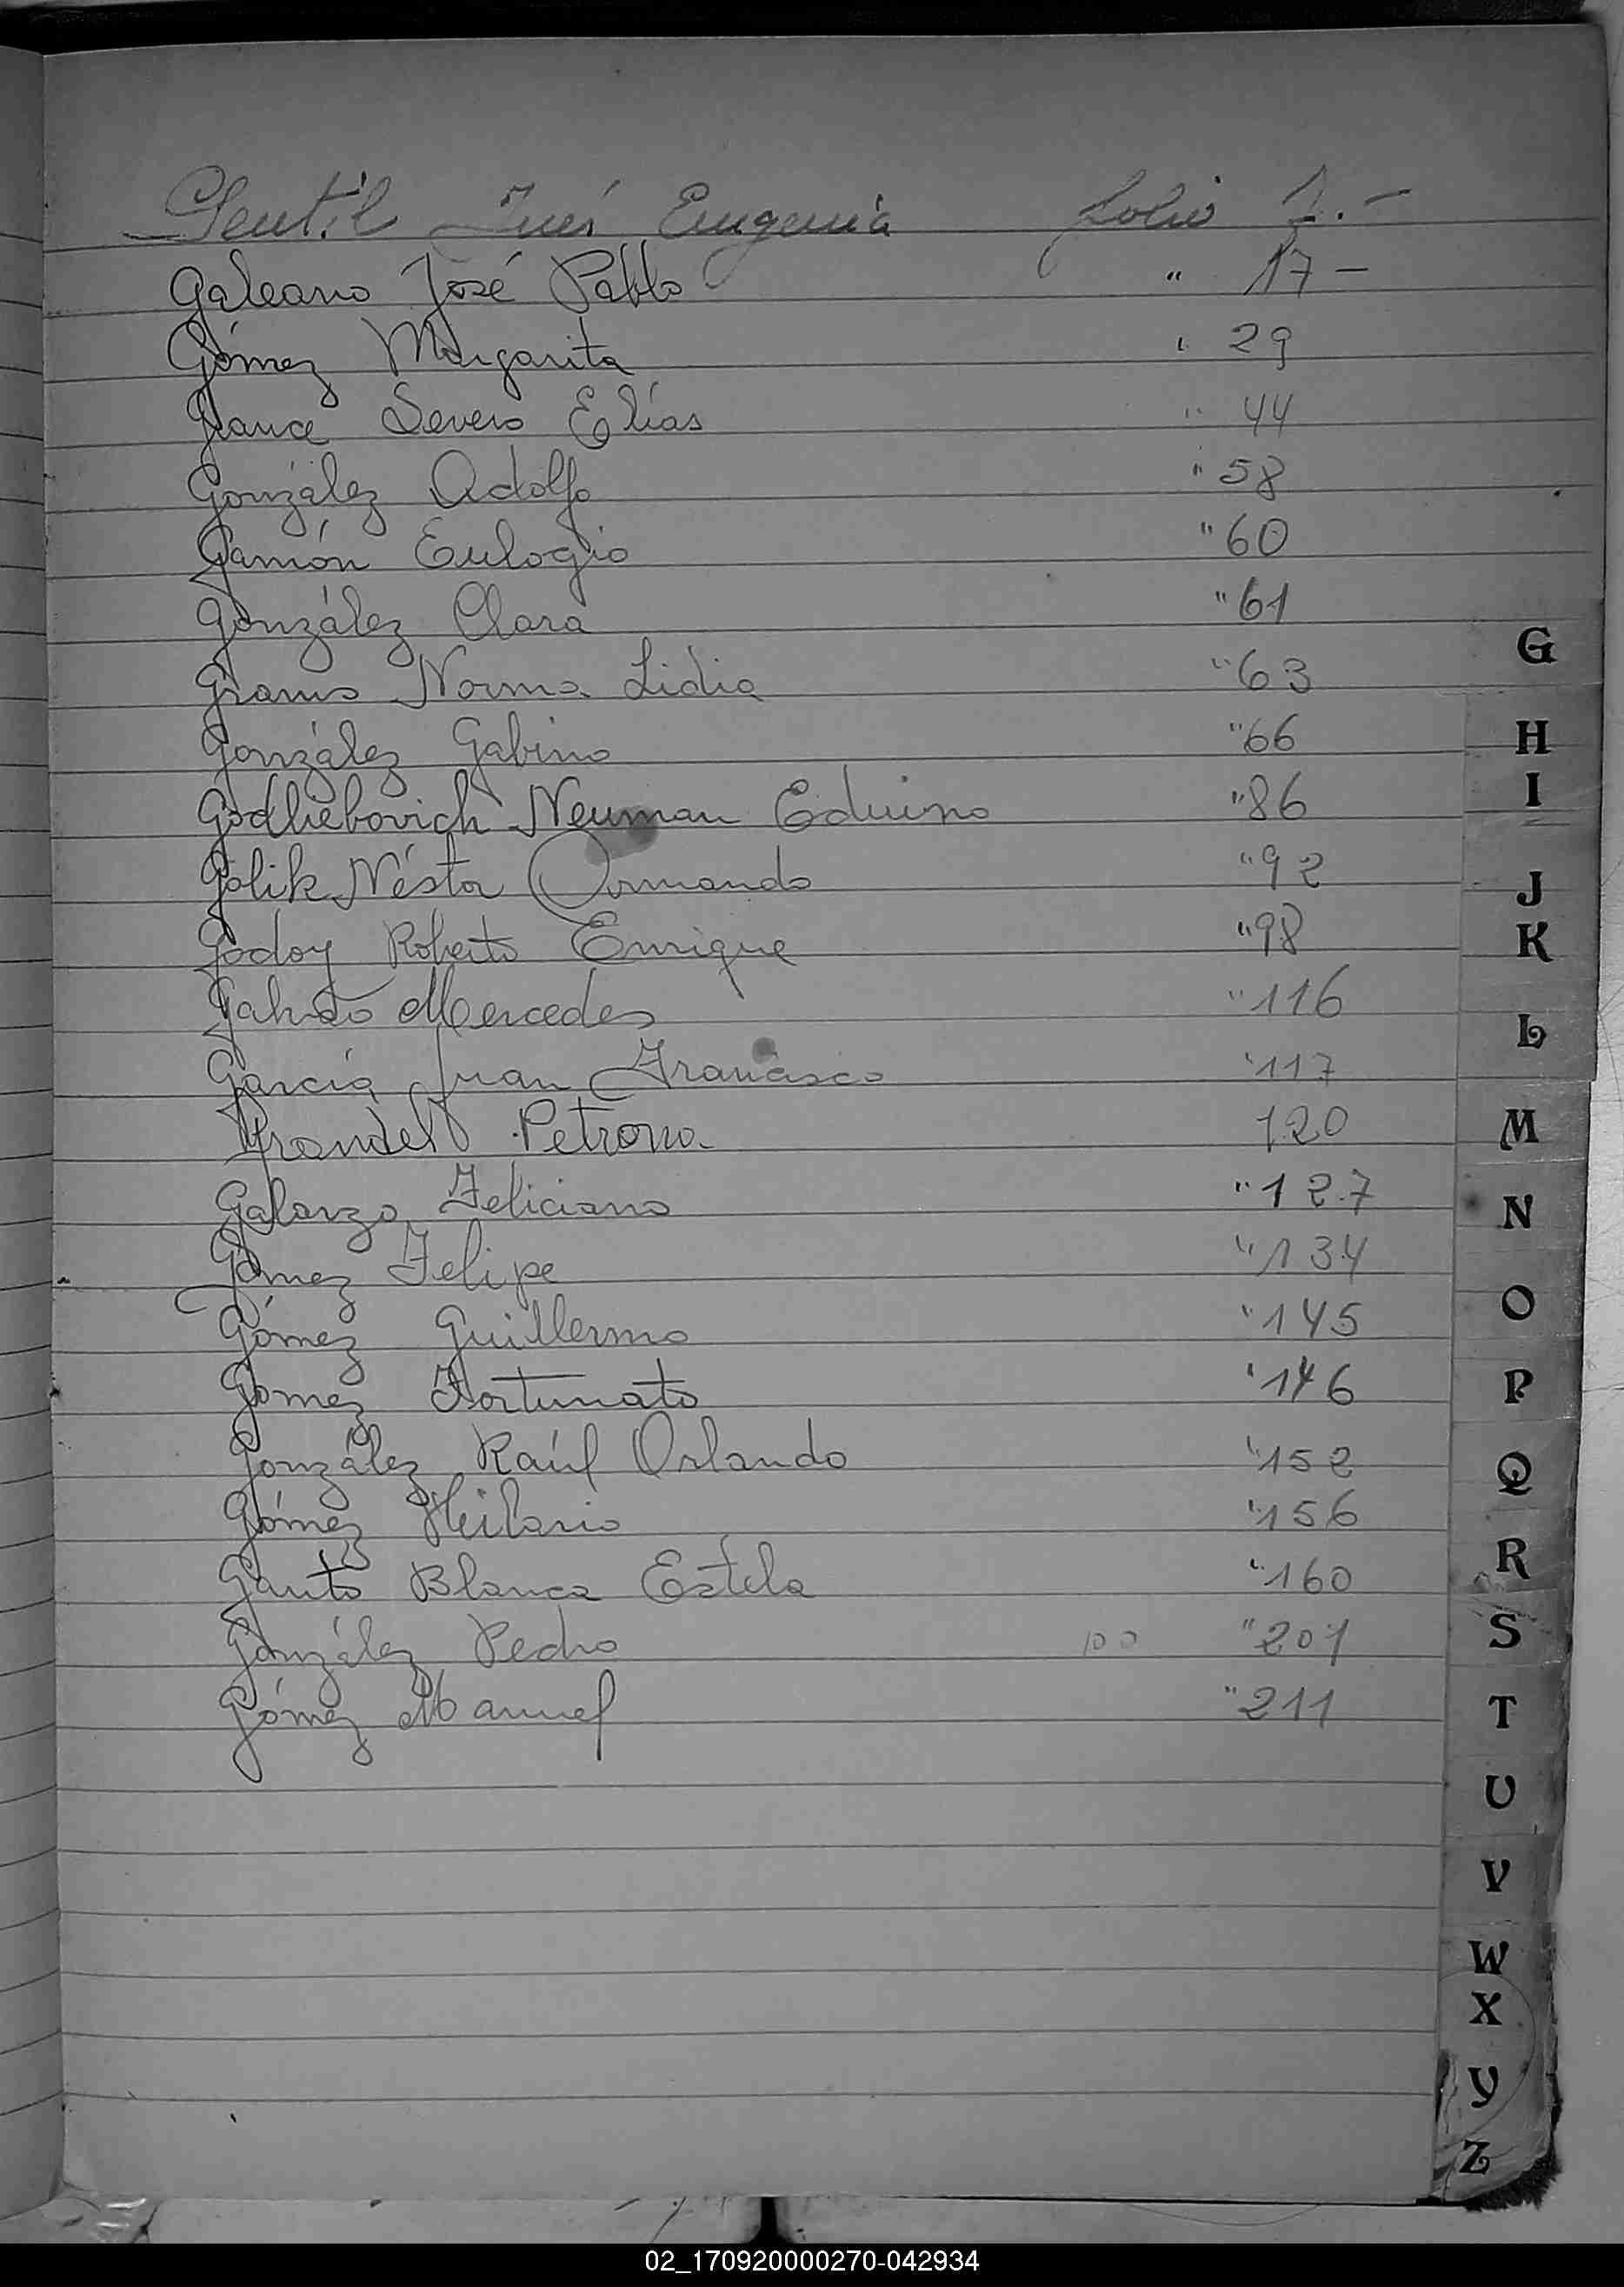 Gentil Inés Eugenia folio 2.-
Galeano José Pablo " 17 -
Gómez Margarita " 29
Grance Severo Elías " 44
González Adolfo " 58
Gamón Eulogio " 60
González Clara " 61
Gramo Norma Lidia " 63
González Gabino " 66
Godhebovich Neuman Eduino " 86
Golik Néstor Armando " 92
Godoy Roberto Enrique " 98
Mercedes " 116
García Juan Francisco " 117
Grandel Petrona 120
Galarza Feliciano " 127
Gómez Felipe " 134
Gómez Guillermo " 145
Gomez Fortunato " 146
González Raúl Orlando " 152
Gómez Heilario " 156
Gauto Blanca Estela " 160
González Pedro " 201
Gómez Manuel " 211
G
H
I
J
K
L
M
N
O
P
Q
R
S
T
U
V
W
X
Y
Z
02_170920000270-042934